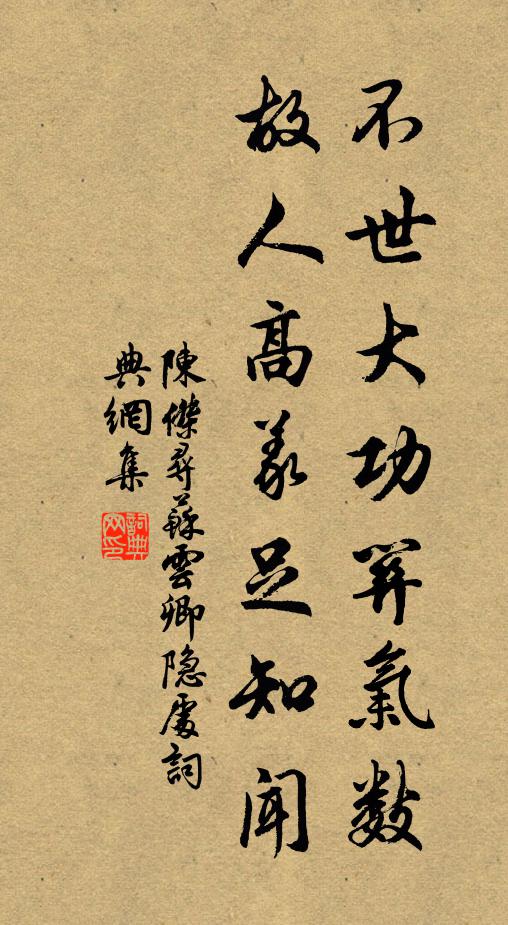 不世大功關氣數
故人髙義足知聞
陳傑尋蘇雲卿隐處詞
典網集
詞典
网印